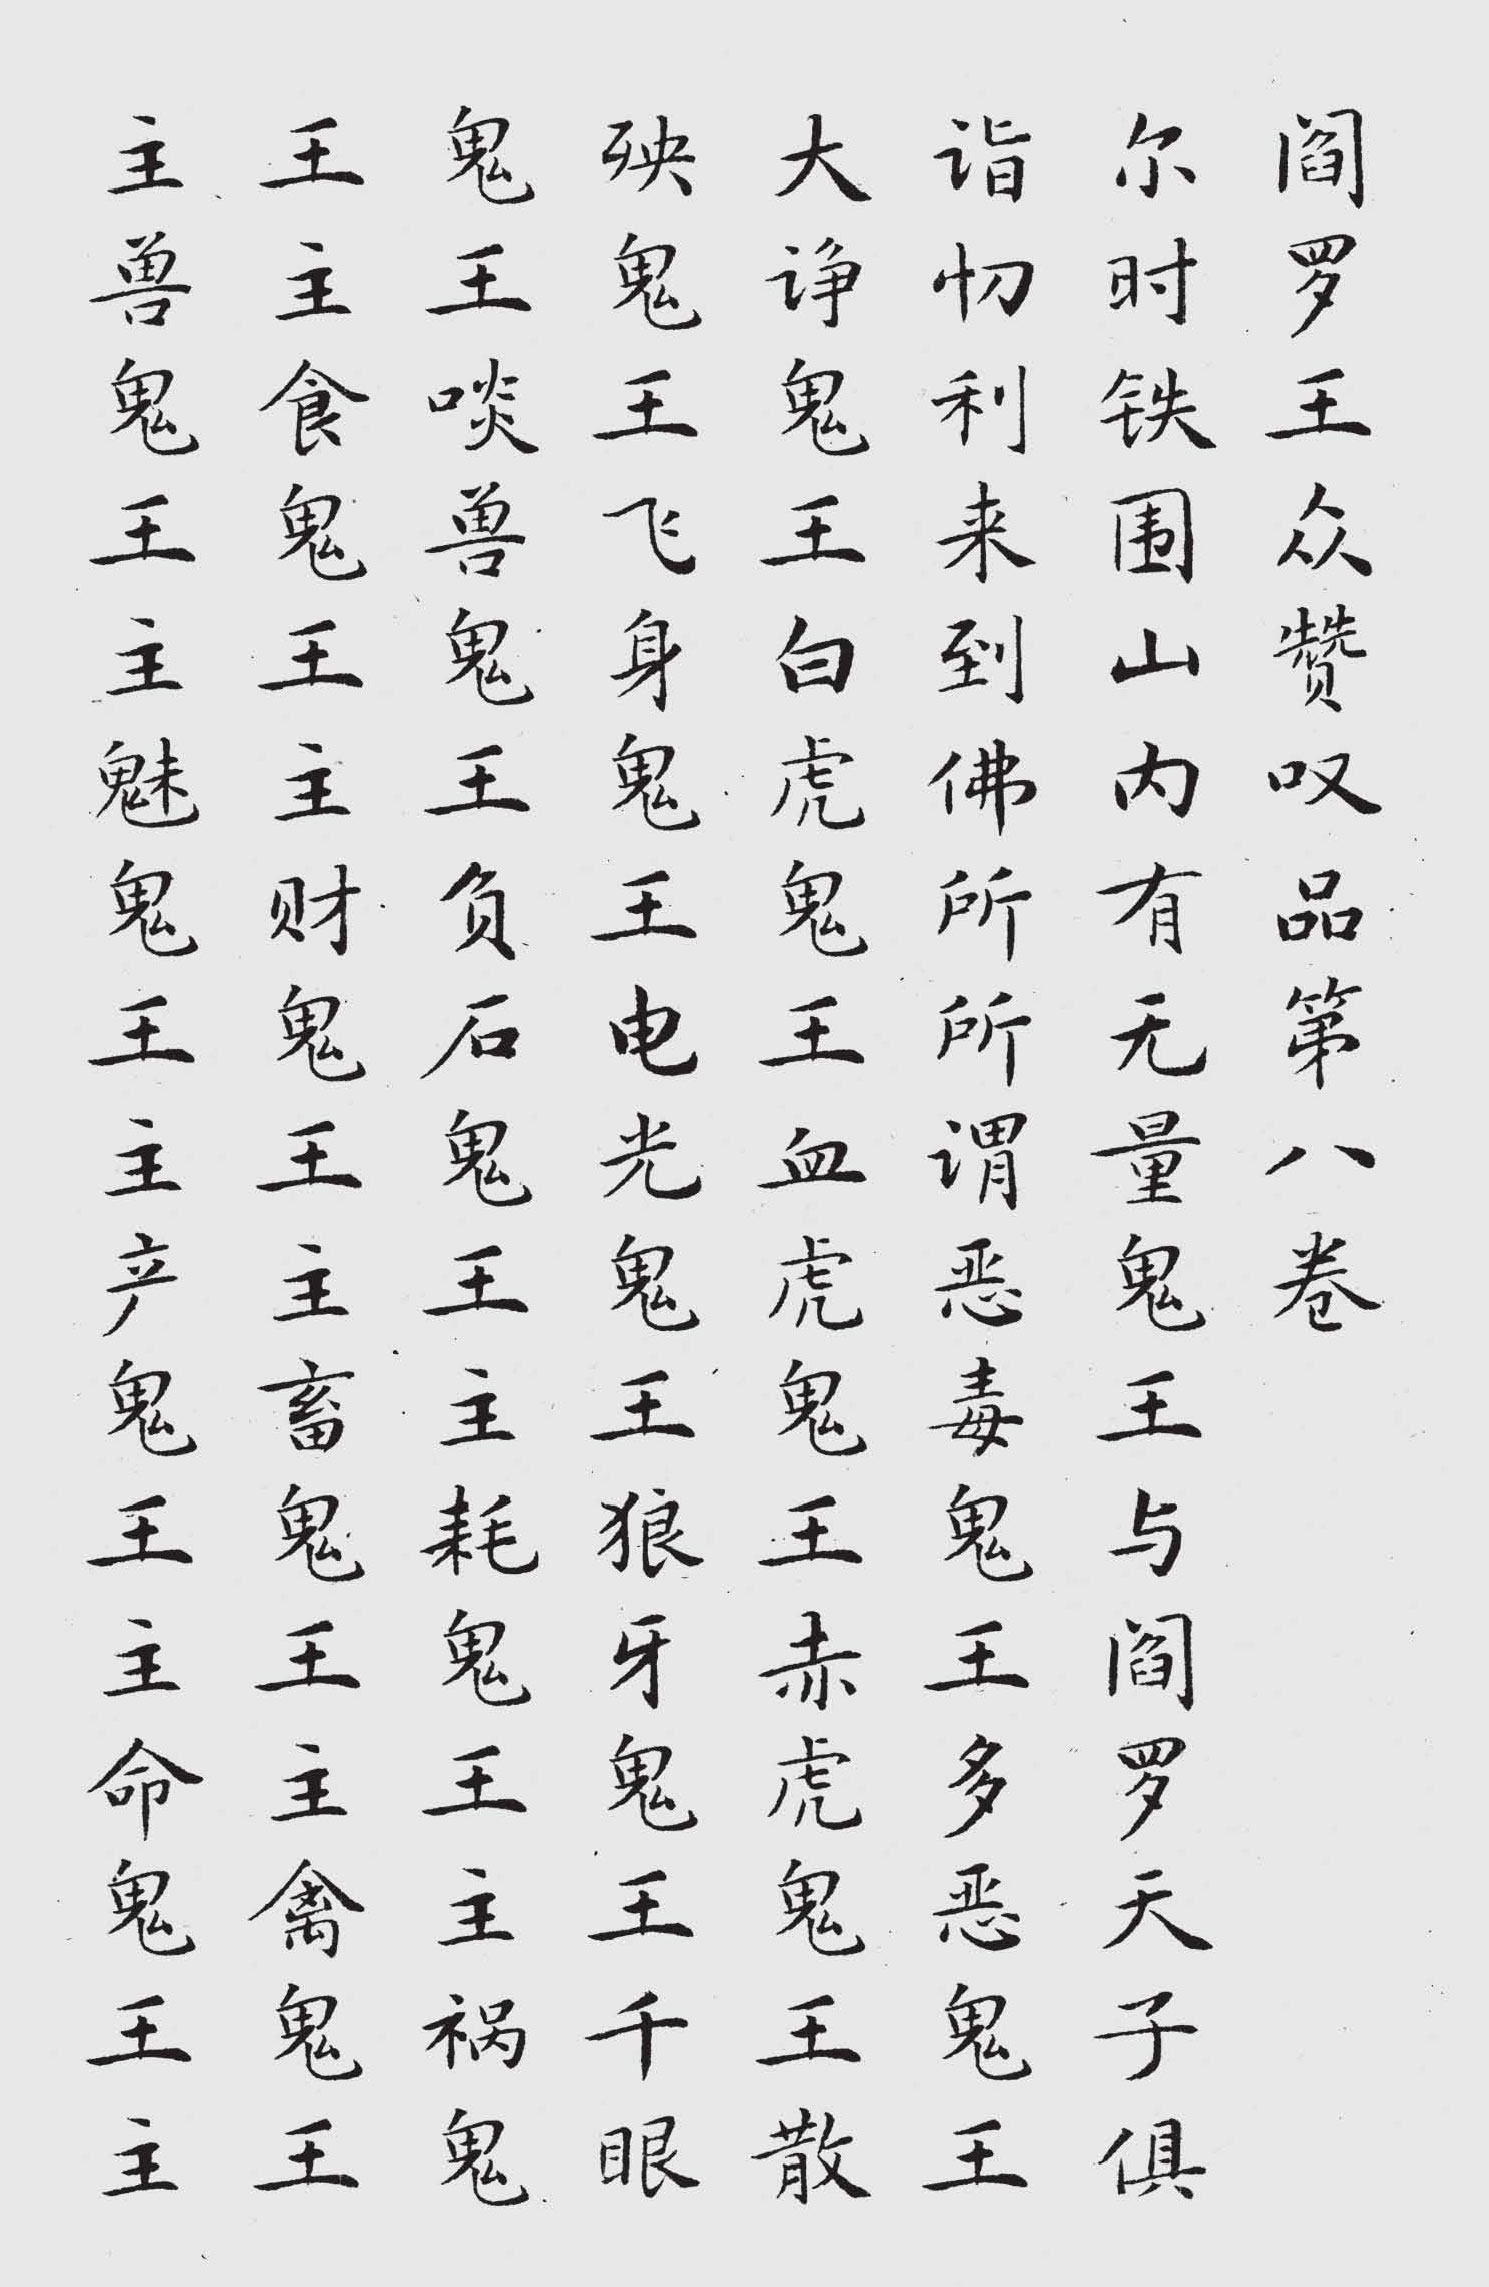 阎罗王众赞叹品第八卷
尔时铁围山内有无量鬼王与阎罗天子俱
诣忉利来到佛所所谓恶毒鬼王多恶鬼王
大诤鬼王白虎鬼王血虎鬼王赤虎鬼王散
殃鬼王飞身鬼王电光鬼王狼牙鬼王千眼
鬼王啖兽鬼王负石鬼王主耗鬼王主祸鬼
王主食鬼王主财鬼王主畜鬼王主禽鬼王
主兽鬼王主魅鬼王主产鬼王主命鬼王主